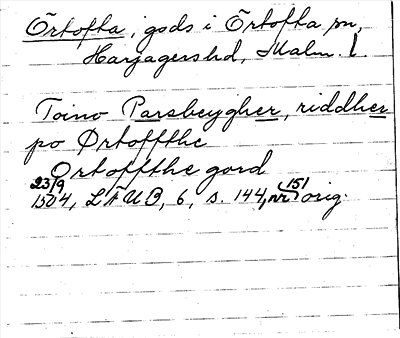 Örtofta, gods i Örtofta sn,
Harjagers hd, Malm. l.
Toino Parsbeygher, riddher
po Ørtoffthe
Ortoffthe gord
23/9
1504, LÄUB, 6, s. 144, nr 151 orig.